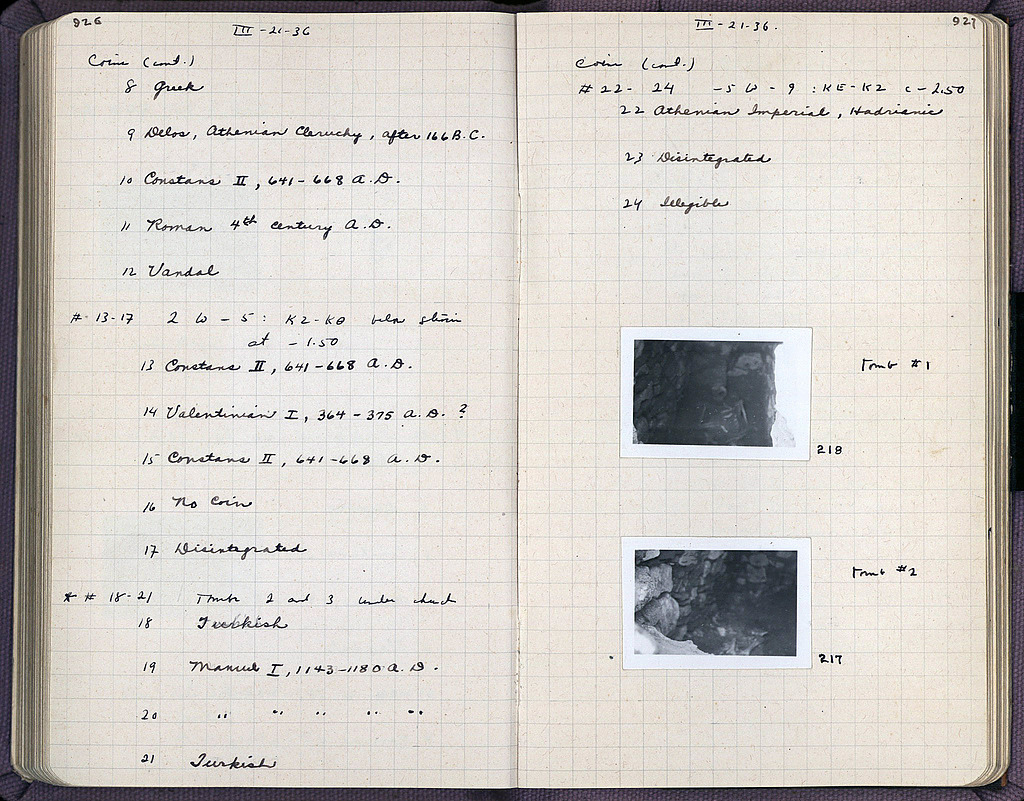 926
III - 21 - 36
Coins (cont.)
8 Greek
9 Delos, Athenian Cleruchy, after 166 B.C.
10 Constans II, 641-668 A.D.
11 Roman 4th century A.D.
12 Vandal
# 13-17 2 W - 5 : KZ-KΘ below stereo
at - 1.50
13 Constans II, 641-668 A.D.
14 Valentinian I, 364-375 A.D. ?
15 Constans II, 641-668 A.D.
16 No Coin
17 Disintegrated
* # 18-21 Tombs 2 and 3 under church
18 Turkish
19 Manuel I, 1143-1180 A.D.
20 " " " " "
21 Turkish
927
III - 21 - 36.
Coins (cont.)
# 22 - 24 - 5 W - 9 : KE-KZ c - 2.50
22 Athenian Imperial, Hadrianic
23 Disintegrated
24 Illegible
Tomb #1
218
Tomb #2
217